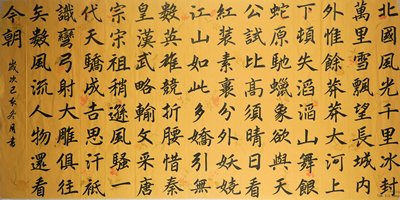 北國風光千里冰封
萬里雪飄望長城內
外惟餘莽莽大河上
下頓失滔滔山舞銀
蛇原馳蠟象欲與天
公試比高須晴日看
紅裝素裹分外妖嬈
江山如此多嬌引無
數英雄競折腰惜秦
皇漢武略輸文采唐
宗宋祖稍遜風騷一
代天驕成吉思汗祇
識彎弓射大雕俱往
矣數風流人物還看
今朝
歲次己亥冬月書